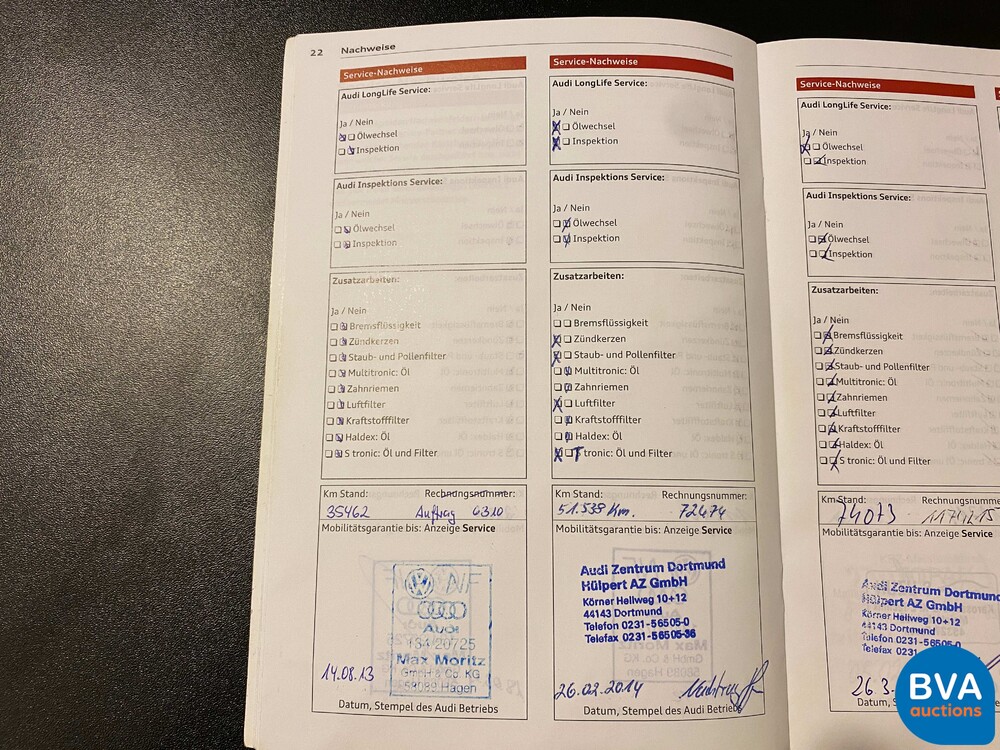 22 Nachweise
Service-Nachweise
Audi LongLife Service:
Ja / Nein
Ölwechsel
Inspektion
Audi Inspektions Service:
Ja / Nein
Ölwechsel
Inspektion
Zusatzarbeiten:
Ja / Nein
Bremsflüssigkeit
Zündkerzen
Staub- und Pollenfilter
Multitronic: Öl
Zahnriemen
Luftfilter
Kraftstofffilter
Haldex: Öl
S tronic: Öl und Filter
Km Stand: Rechnungsnummer:
35462 Auftrag 6310
Mobilitätsgarantie bis: Anzeige Service
Audi
Max Moritz
GmbH & Co. KG
58089 Hagen
14.08.13
Datum, Stempel des Audi Betriebs
Service-Nachweise
Audi LongLife Service:
Ja / Nein
Ölwechsel
Inspektion
Audi Inspektions Service:
Ja / Nein
Ölwechsel
Inspektion
Zusatzarbeiten:
Ja / Nein
Bremsflüssigkeit
Zündkerzen
Staub- und Pollenfilter
Multitronic: Öl
Zahnriemen
Luftfilter
Kraftstofffilter
Haldex: Öl
S tronic: Öl und Filter
Km Stand: Rechnungsnummer:
51.538 Km. 72474
Mobilitätsgarantie bis: Anzeige Service
Audi Zentrum Dortmund
Hülpert AZ GmbH
Körner Hellweg 10+12
44143 Dortmund
Telefon 0231-56505-0
Telefax 0231-56505-36
26.02.2014
Datum, Stempel des Audi Betriebs
Service-Nachweise
Audi LongLife Service:
Ja / Nein
Ölwechsel
Inspektion
Audi Inspektions Service:
Ja / Nein
Ölwechsel
Inspektion
Zusatzarbeiten:
Ja / Nein
Bremsflüssigkeit
Zündkerzen
Staub- und Pollenfilter
Multitronic: Öl
Zahnriemen
Luftfilter
Kraftstofffilter
Haldex: Öl
S tronic: Öl und Filter
Km Stand: Rechnungsnumme
74073
Mobilitätsgarantie bis: Anzeige Service
Audi Zentrum Dortmund
Hülpert AZ GmbH
Körner Hellweg 10+12
44143 Dortmund
Telefon 0231-56505-0
Telefax 0231-
26 3-
Datum, S
BVA
auctions